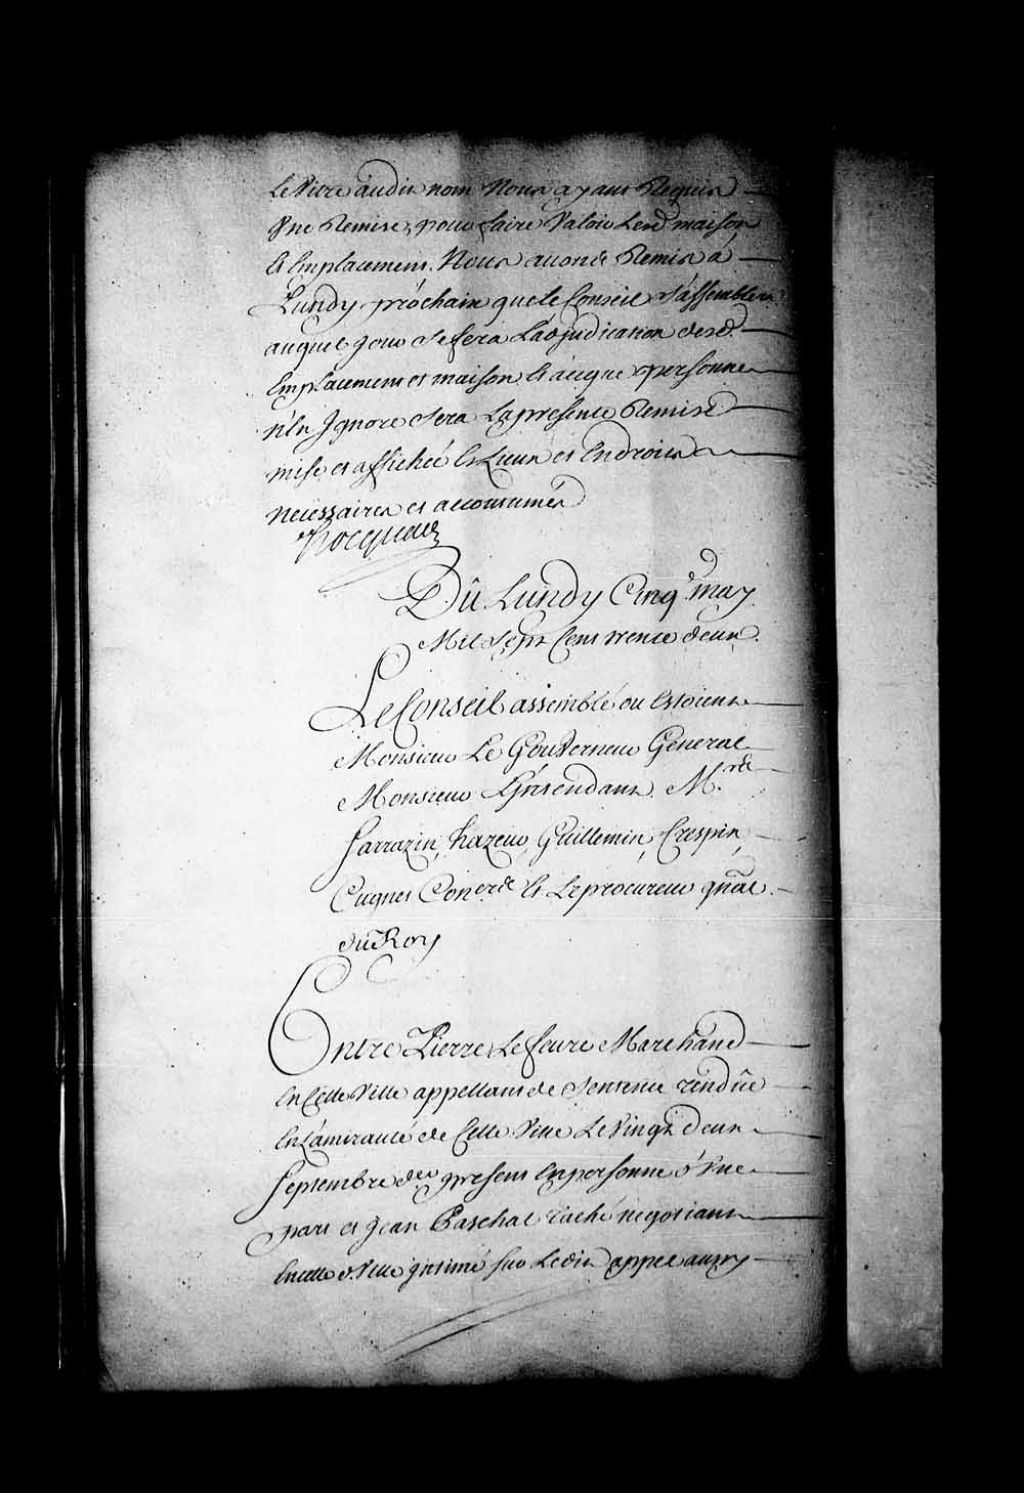 Le Vitre audit nom Nous ayant Requis
Une Remise, pour faire Valoir Lesd. maison
Et Emplacement. Nous avons Remis a
Lundy prochain que le Conseil s'assemblera
auquel jour se fera L'adjudication desd.
Emplacement et maison Et a ce que personne
n'En Ignore sera La presente Remise
mise et affichée Es Lieux et Endroits
necessaires et accoutumés
Hocquart
Du Lundy Cinqe. may
Mil Sept Cent trente deux.
Le Conseil assemblé ou Estoient
Monsieur Le Gouverneur General
Monsieur L'Intendant. Mrs.
Sarrazin, hazeur, Guillemin, Crespin,
Cugnet Coners. Et Le procureur gnâl.
du Roy
Entre Pierre Le feure Marchand
En Cette Ville appellant de Sentence rendüe
En L'amirauté de Cette Ville Le Vingt deux
Septembre der. present En personne d'Une
part et Jean Paschal taché negotiant
En cette d. Ville Intimé sur Ledit appel aussy